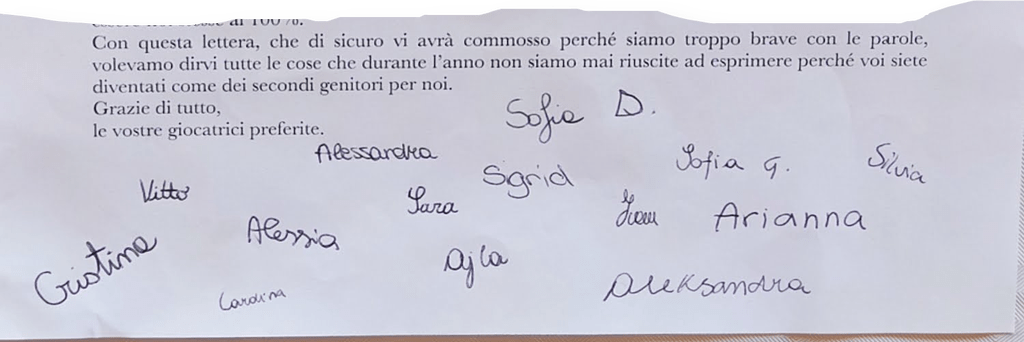 al 100%.
Con questa lettera, che di sicuro vi avrà commosso perché siamo troppo brave con le parole,
volevamo dirvi tutte le cose che durante l'anno non siamo mai riuscite ad esprimere perché voi siete
diventati come dei secondi genitori per noi.
Grazie di tutto,
le vostre giocatrici preferite.
Sofia D.
Alessandra
Sofia G.
Silvia
Vitto
Sigrid
Sara
Arianna
Alessia
Cristina
Ajla
Aleksandra
Carolina